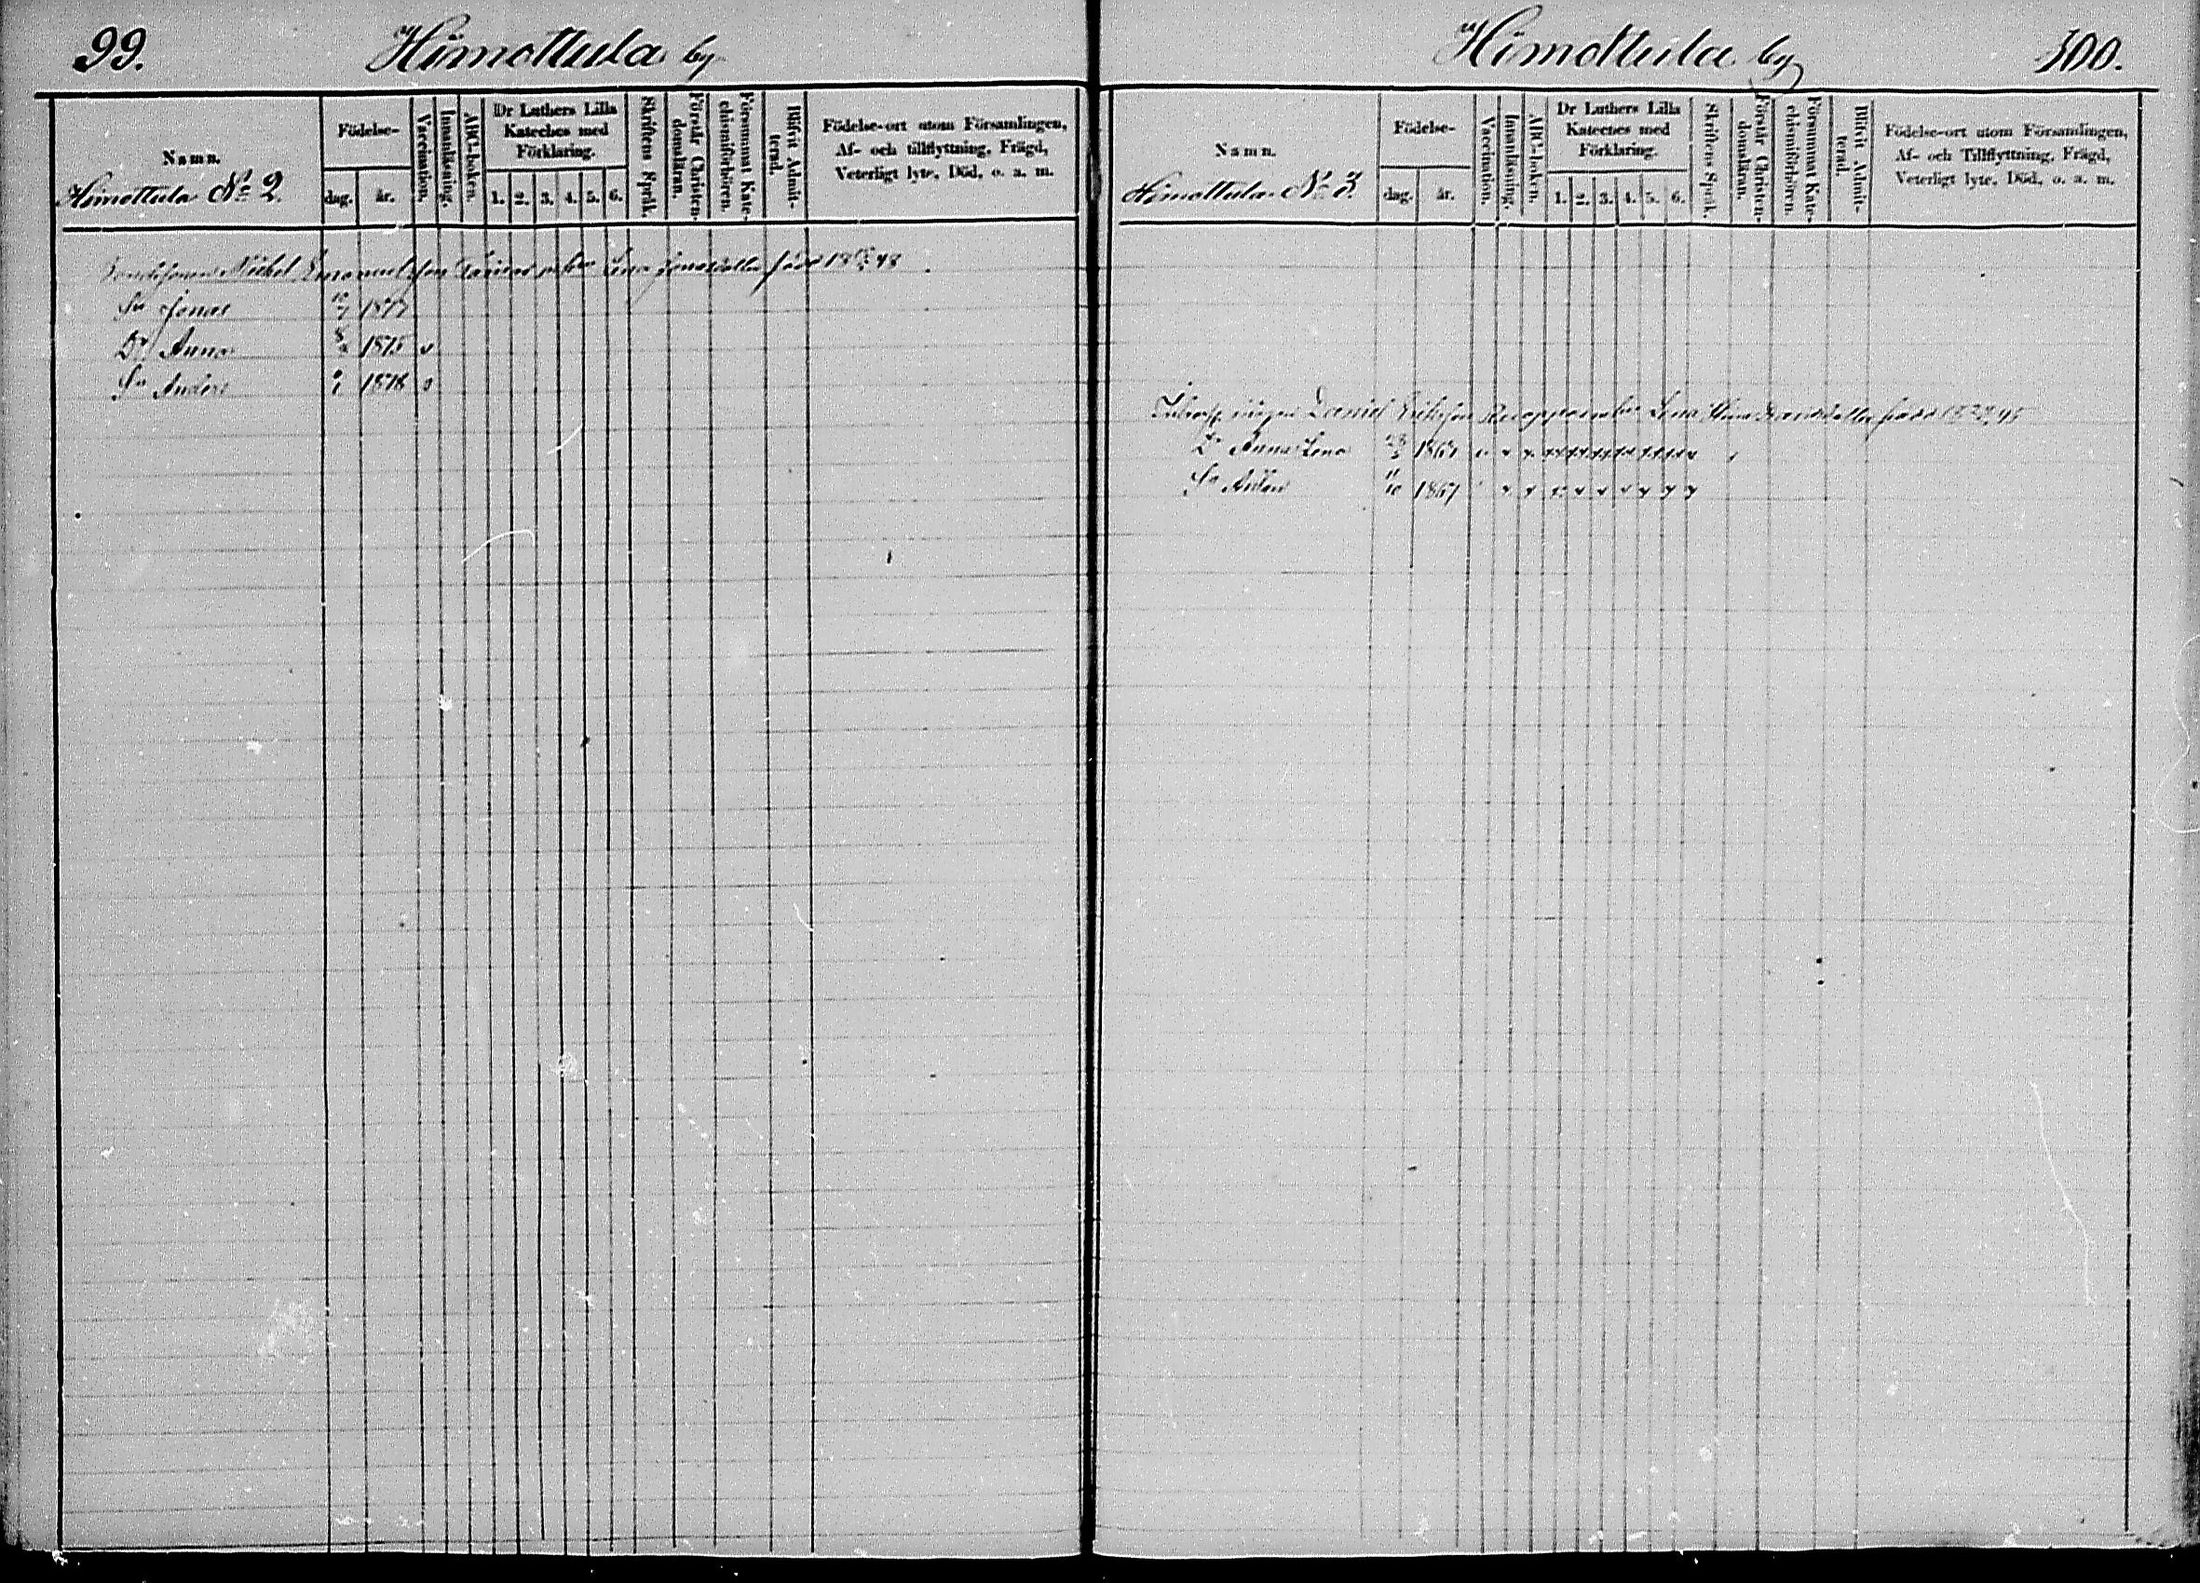 99.
Himottula by
Namn.
Himottula No 2.
Födelse-
dag.
år.
Vaccination.
Innanläsning.
ABC-boken.
Dr Luthers Lilla
Kateches med
Förklaring.
1. 2. 3. 4. 5. 6.
Skriftens Språk.
Förstår Christen-
domsläran.
Försummat Kate-
chismiförhören.
Blifvit Admit-
terad.
Födelse-ort utom Församlingen,
Af- och tillflyttning, Frägd,
Veterligt lyte, Död, o. a. m.
Michel Emanuelsson Lena född 18 48
Sn Jonas
Dr Anna 1875 v
Sn Anders 1878
Himottula by
100.
Namn.
Himottula No 3.
Födelse-
dag.
år.
Vaccination.
Innanläsning.
ABC-boken.
Dr Luthers Lilla
Kateches med
Förklaring.
1. 2. 3. 4. 5. 6.
Skriftens Språk.
Förstår Christen-
domsläran.
Försummat Kate-
chismiförhören.
Blifvit Admit-
terad.
Födelse-ort utom Församlingen,
Af- och Tillflyttning, Frägd,
Veterligt lyte, Död, o. a. m.
Daniel Eriksson Lena Stina
Dr Anna Lena
Sn Anders 11/10 1867